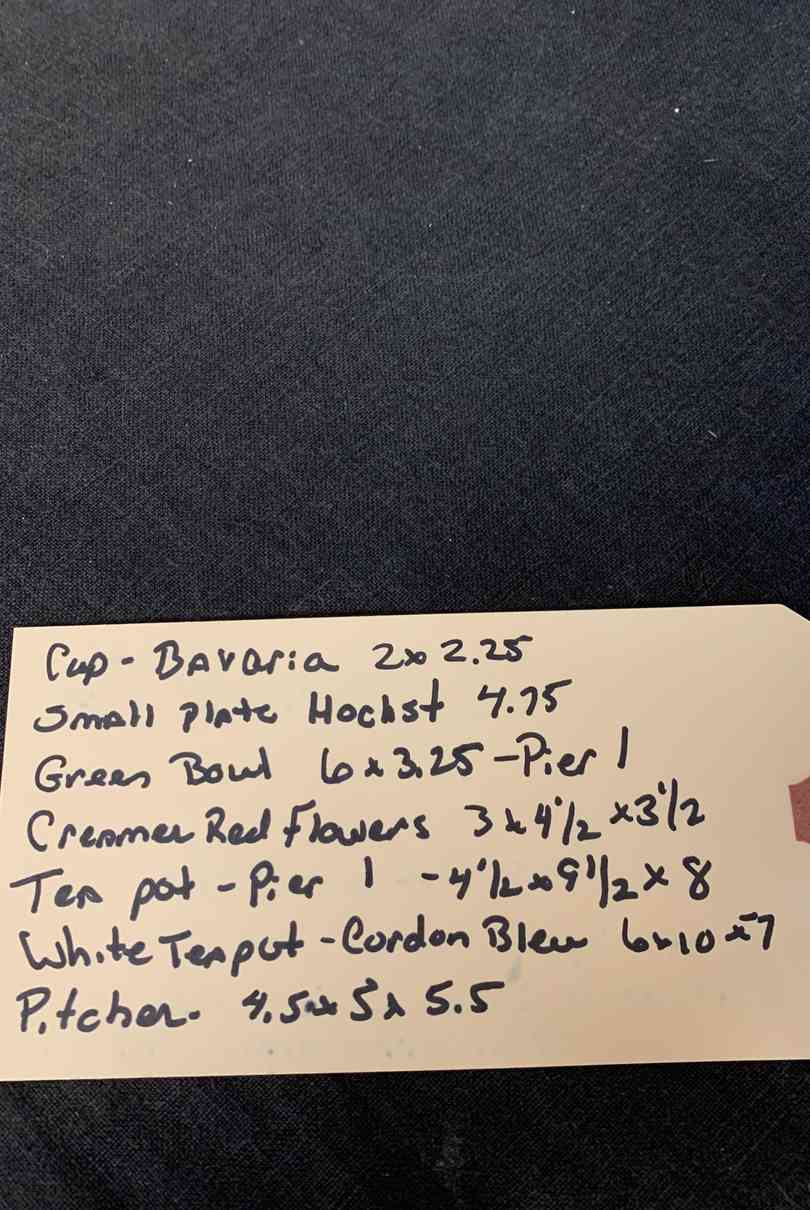 Cup - Bavaria 2x 2.25
Small plate Hochst 4.75
Green Bowl 6 x 3.25 - Pier 1
Creamer Red Flowers 3 x 4 1/2 x 3 1/2
Tea pot - Pier 1 - 4 1/2 x 9 1/2 x 8
White Teapot - Cordon Bleu 6x10 x 7
Pitcher. 4.5 x 5 x 5.5